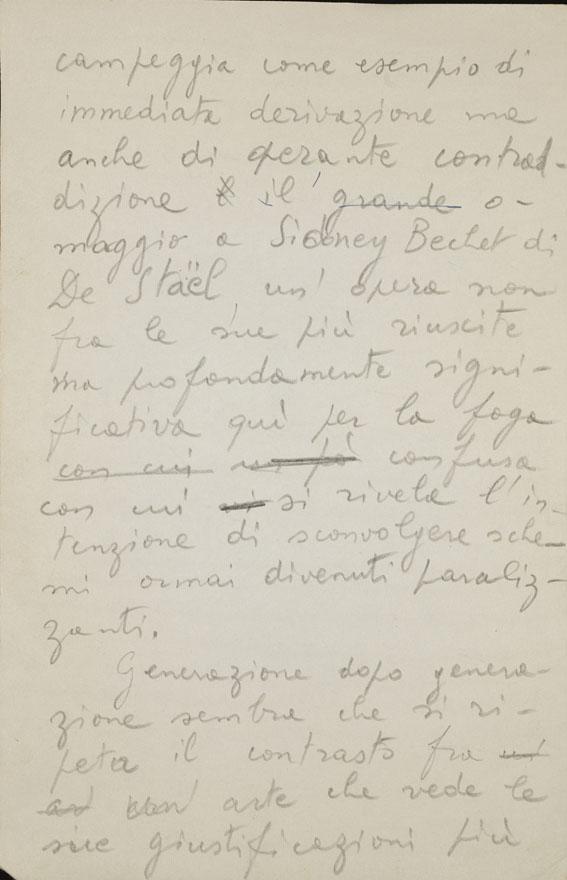 campeggia come esempio di
immediata derivazione ma
anche di operante contrad-
dizione il grande o-
maggio a Sidney Bechet di
De Staël, un' opera non
fra le sue più riuscite
ma profondamente signi-
ficativa quì per la foga
con cui un pò confusa
con cui si rivela l'in-
tenzione di sconvolgere sche-
mi ormai divenuti paraliz-
zanti.
Generazione dopo genera-
zione sembra che si ri-
peta il contrasto fra
un' arte che vede le
sue giustificazioni più